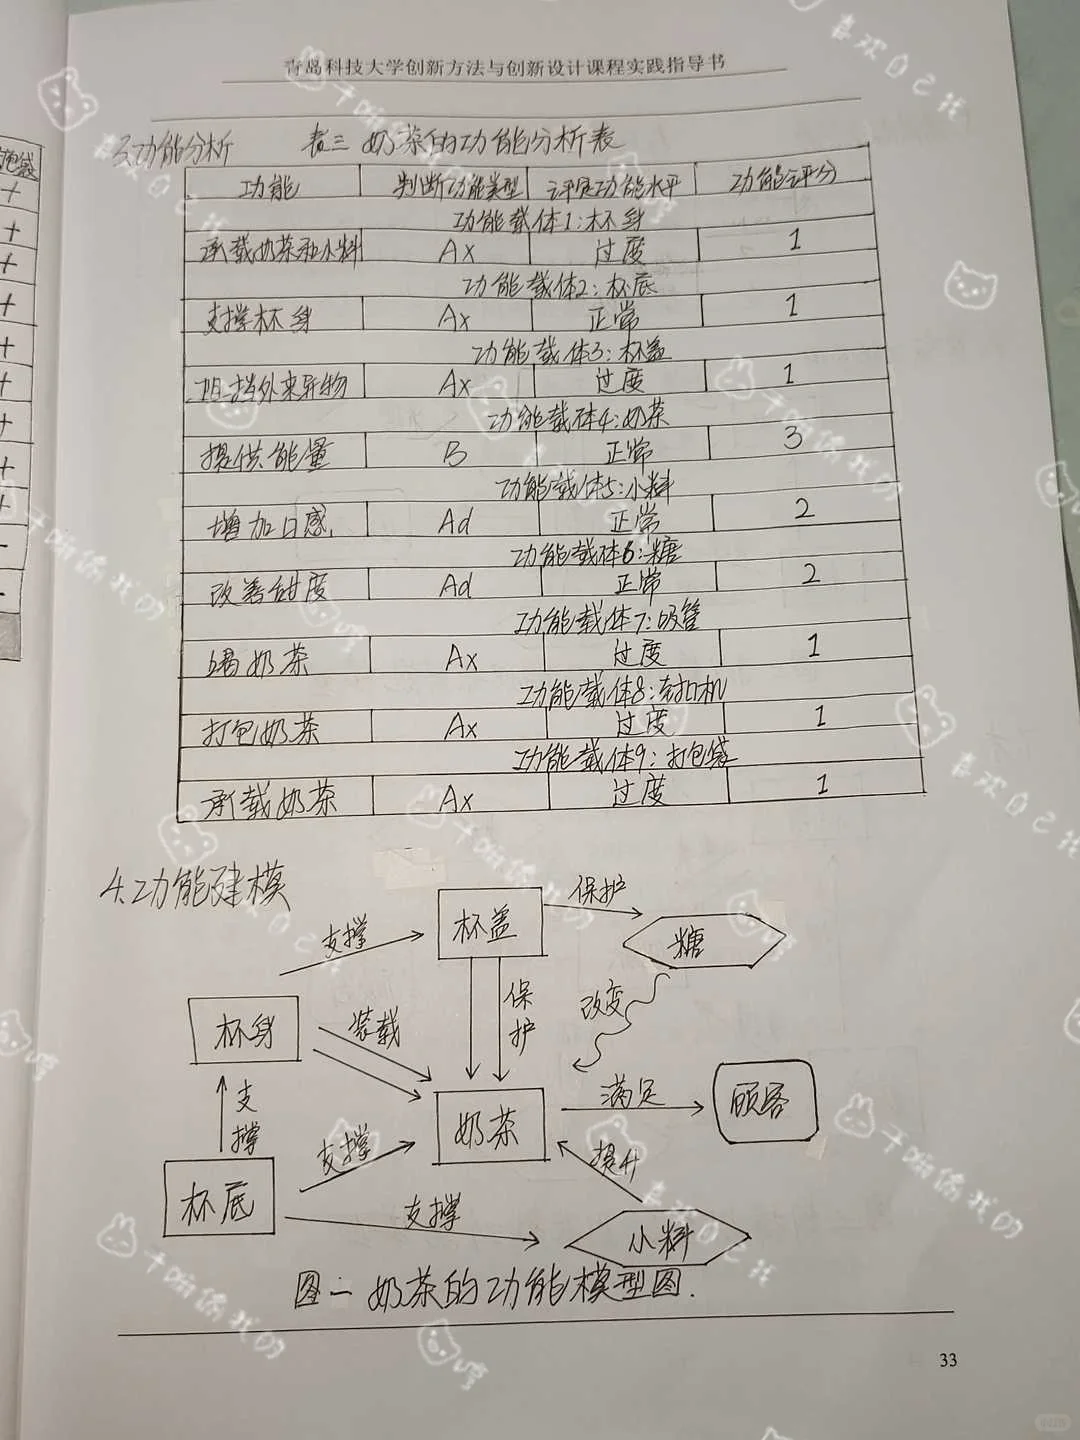 青岛科技大学创新方法与创新设计课程实践指导书
3.功能分析 表三 奶茶的功能分析表
功能 判断功能类型 评定功能水平 功能评分
功能载体1:杯身
承载奶茶和小料 Ax 过度 1
功能载体2:杯底
支撑杯身 Ax 正常 1
功能载体3:杯盖
阻挡外来异物 Ax 过度 1
功能载体4:奶茶
提供能量 B 正常 3
功能载体5:小料
增加口感 Ad 正常 2
功能载体6:糖
改善甜度 Ad 正常 2
功能载体7:吸管
喝奶茶 Ax 过度 1
功能载体8:封口机
打包奶茶 Ax 过度 1
功能载体9:打包袋
承载奶茶 Ax 过度 1
4.功能建模
支撑
杯盖
保护
糖
杯身
装载
保护
改变
支撑
支撑
奶茶
满足
顾客
杯底
支撑
提升
小料
图一 奶茶的功能模型图.
33
打包袋
+
+
+
+
+
+
+
+
+
-
-
喜欢自己找